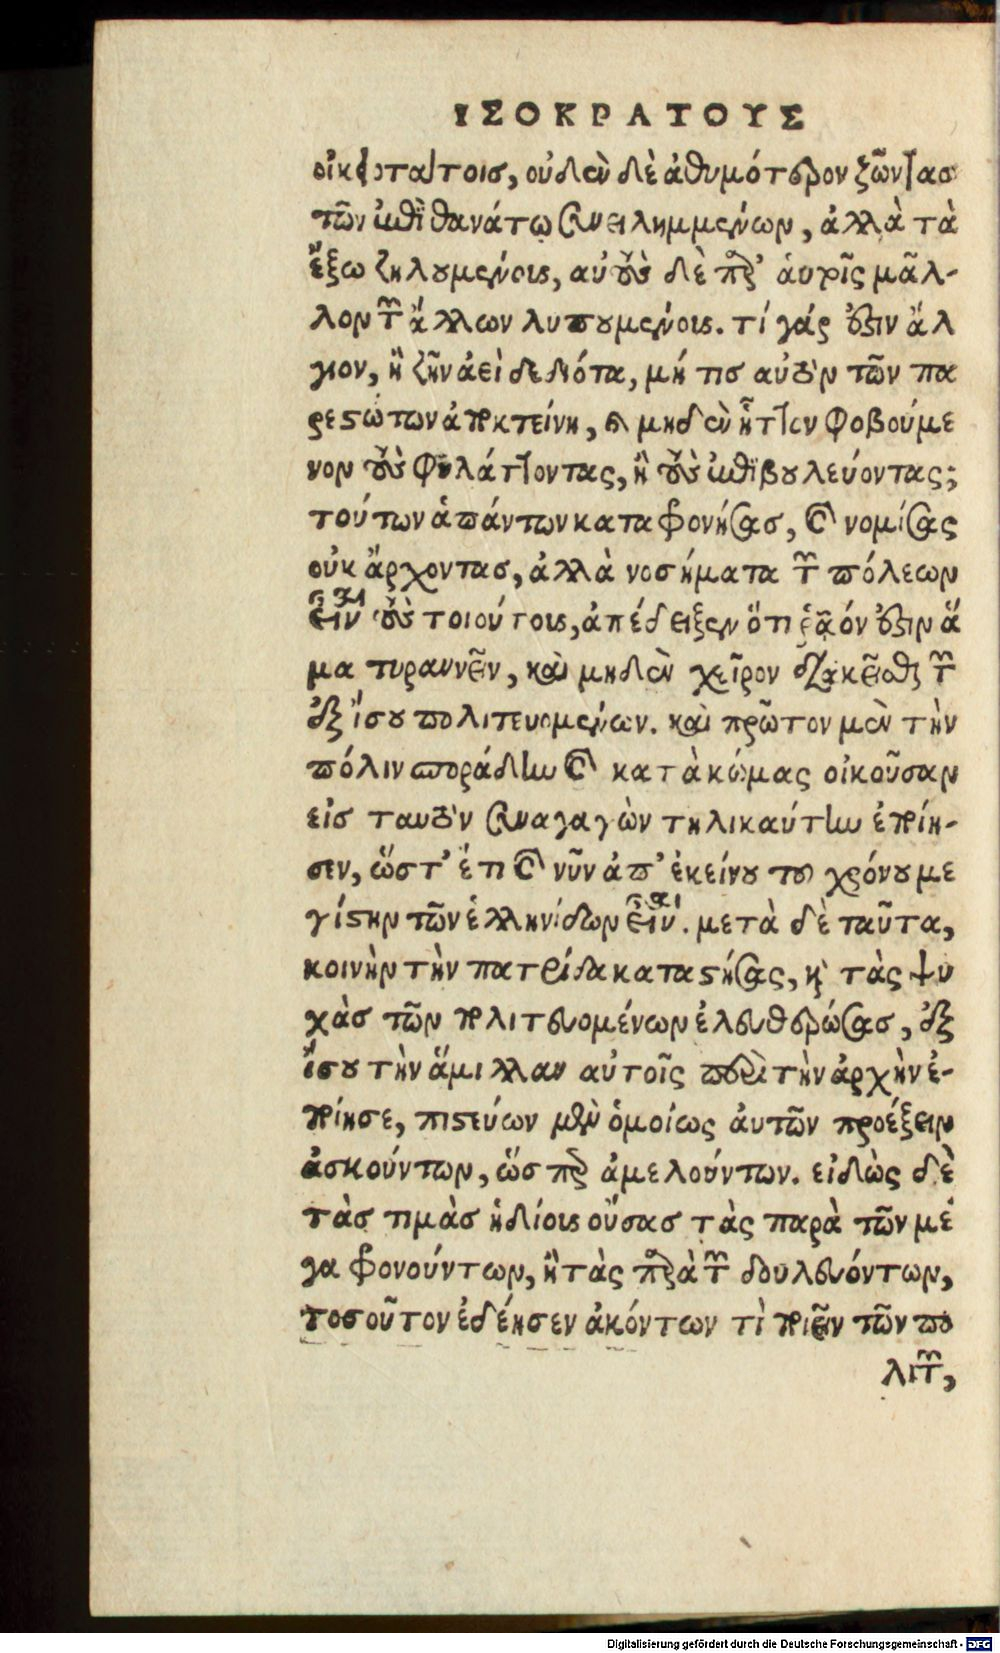 ΙΣΟΚΡΑΤΟΥΣ
οἰκειοτάτοις, οὐδὲν δὲ ἀθυμότερον ζῶντας
τῶν ἐπὶ θανάτῳ συνειλημμένων, ἀλλὰ τὰ
ἔξω ζηλουμένους, αὐτοὺς δὲ παρ' αὑτοῖς μᾶλ-
λον τῶν ἄλλων λυπουμένους. τί γάρ ἐστιν ἄλ
γιον, ἢ ζῆν ἀεὶ δεδιότα, μή τις αὐτὸν τῶν πα
ρεστώτων ἀποκτείνῃ, καὶ μηδὲν ἧττον φοβούμε
νον τοὺς φυλάττοντας, ἢ τοὺς ἐπιβουλεύοντας;
τούτων ἁπάντων καταφρονήσας, καὶ νομίσας
οὐκ ἄρχοντας, ἀλλὰ νοσήματα τῶν πόλεων
εἶναι τοὺς τοιούτους, ἀπέδειξεν ὅτι ῥᾷόν ἐστιν ἅ
μα τυραννεῖν, καὶ μηδὲν χεῖρον διακεῖσθαι τῶν
ἐξ ἴσου πολιτευομένων. καὶ πρῶτον μὲν τὴν
πόλιν σποράδην καὶ κατὰ κώμας οἰκοῦσαν
εἰς ταυτὸν συναγαγὼν τηλικαύτην ἐποίη-
σεν, ὥστ' ἔτι καὶ νῦν ἀπ' ἐκείνου τοῦ χρόνου με
γίστην τῶν ἑλληνίδων εἶναι. μετὰ δὲ ταῦτα,
κοινὴν τὴν πατρίδα καταστήσας, καὶ τὰς ψυ
χὰς τῶν πολιτευομένων ἐλευθερώσας, ἐξ
ἴσου τὴν ἅμιλλαν αὐτοῖς περὶ τὴν ἀρχὴν ἐ-
ποίησε, πιστεύων μὲν ὁμοίως αὐτῶν προέξειν
ἀσκούντων, ὥσπερ ἀμελούντων. εἰδὼς δὲ
τὰς τιμὰς ἡδίους οὔσας τὰς παρὰ τῶν μέ
γα φρονούντων, ἢ τὰς παρὰ τῶν δουλευόντων,
τοσοῦτον ἐδέησεν ἀκόντων τὶ ποιεῖν τῶν πο
λιτῶν,
Digitalisierung gefördert durch die Deutsche Forschungsgemeinschaft - DFG